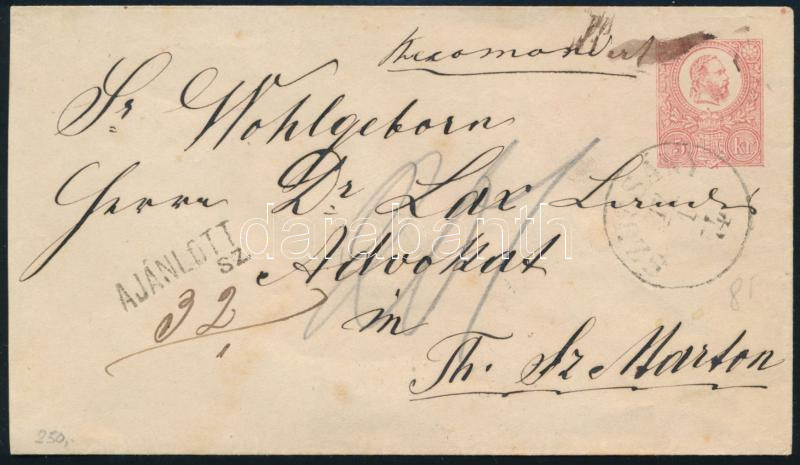 Recomandirt
Sr Wohlgeborn
Herrn Dr Lax Landes
Advokat
in
Th. Sz Marton
AJÁNLOTT
SZ.
32
5 Kr.
darabanth
250,-